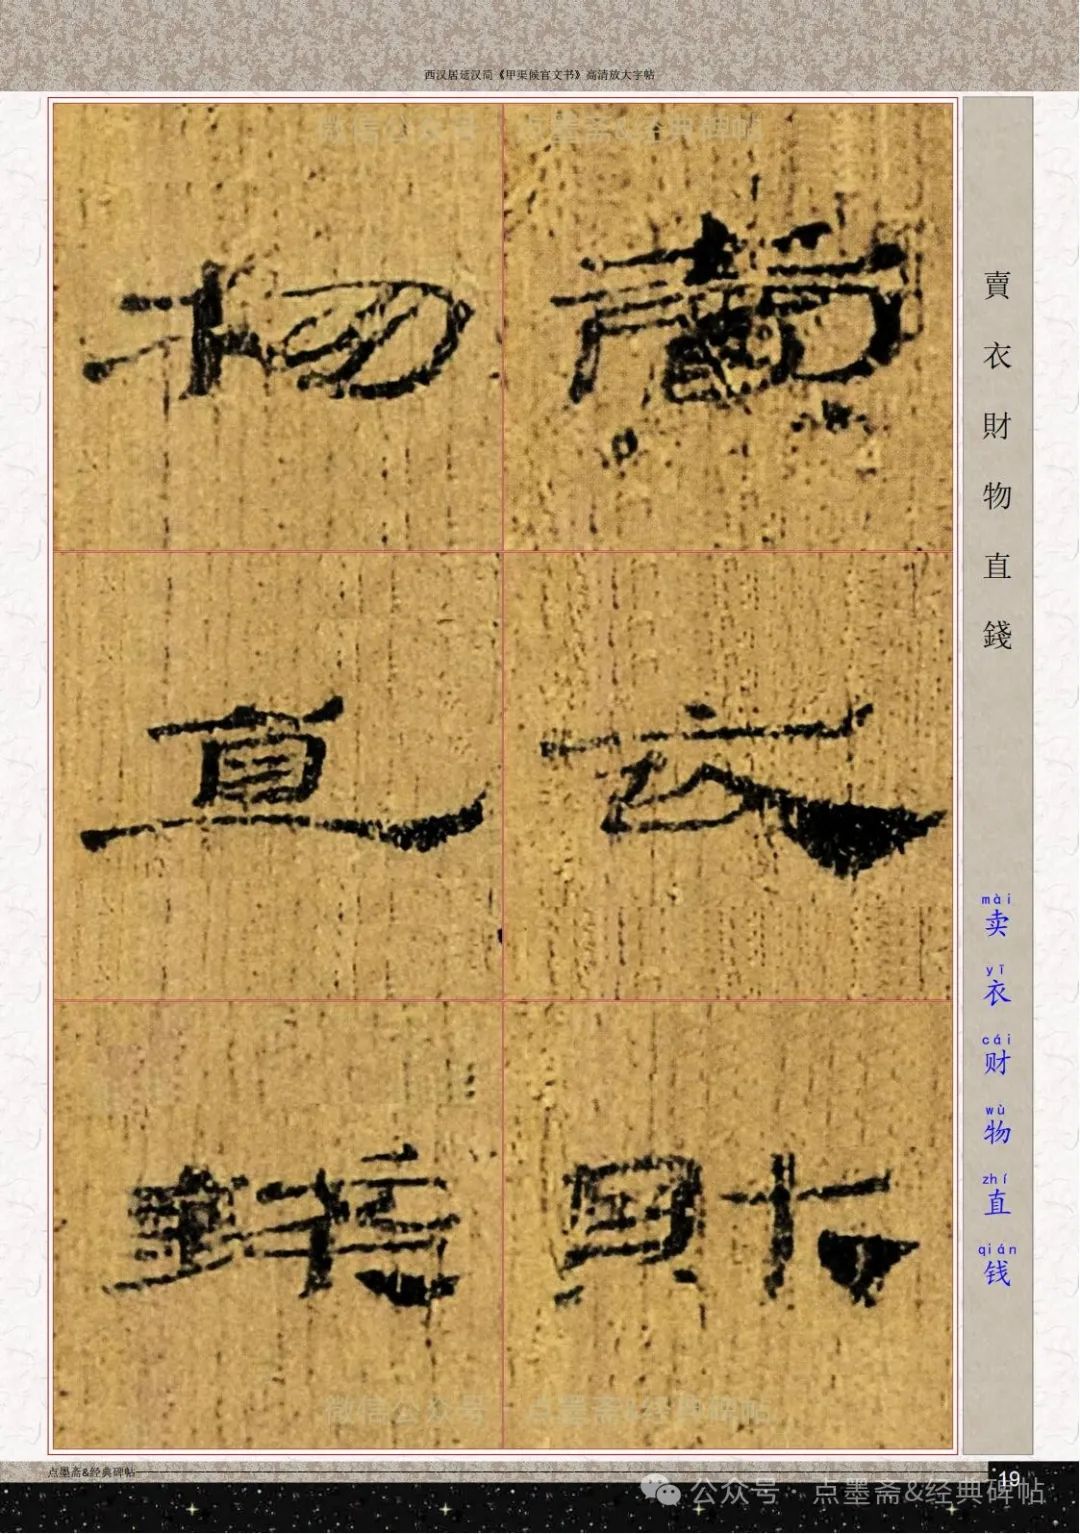 西汉居延汉简《甲渠候官文书》高清放大字帖
微信公众号 点墨斋&经典碑帖
賣
衣
財
物
直
錢
賣衣財物直錢
mài
卖
yī
衣
cái
财
wù
物
zhí
直
qián
钱
微信公众号 点墨斋&经典碑帖
点墨斋&经典碑帖
19
公众号 · 点墨斋&经典碑帖